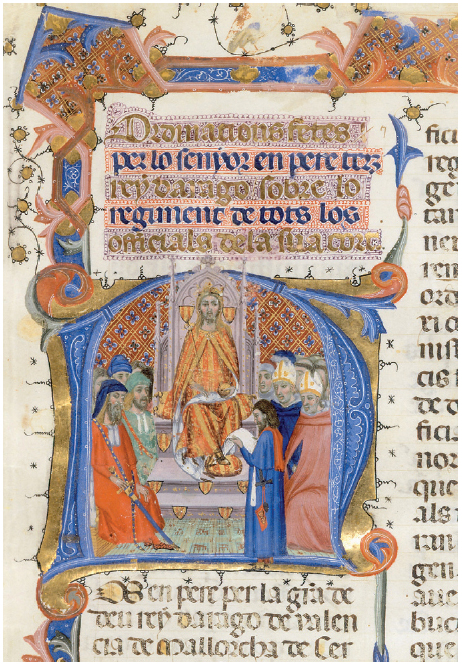 Ordinacions fetes
per lo senyor en pere terç
rey darago sobre lo
regiment de tots los
officials dela sua cort
Nos en pere per la gr̃a de
deu rey darago de valen
cia de Mallorcha de Cer
fici
reg
ge
ner
rem
xi c
mist
cis f
de d
ficia
nor
que
als
ran
gen
aue
buc
que